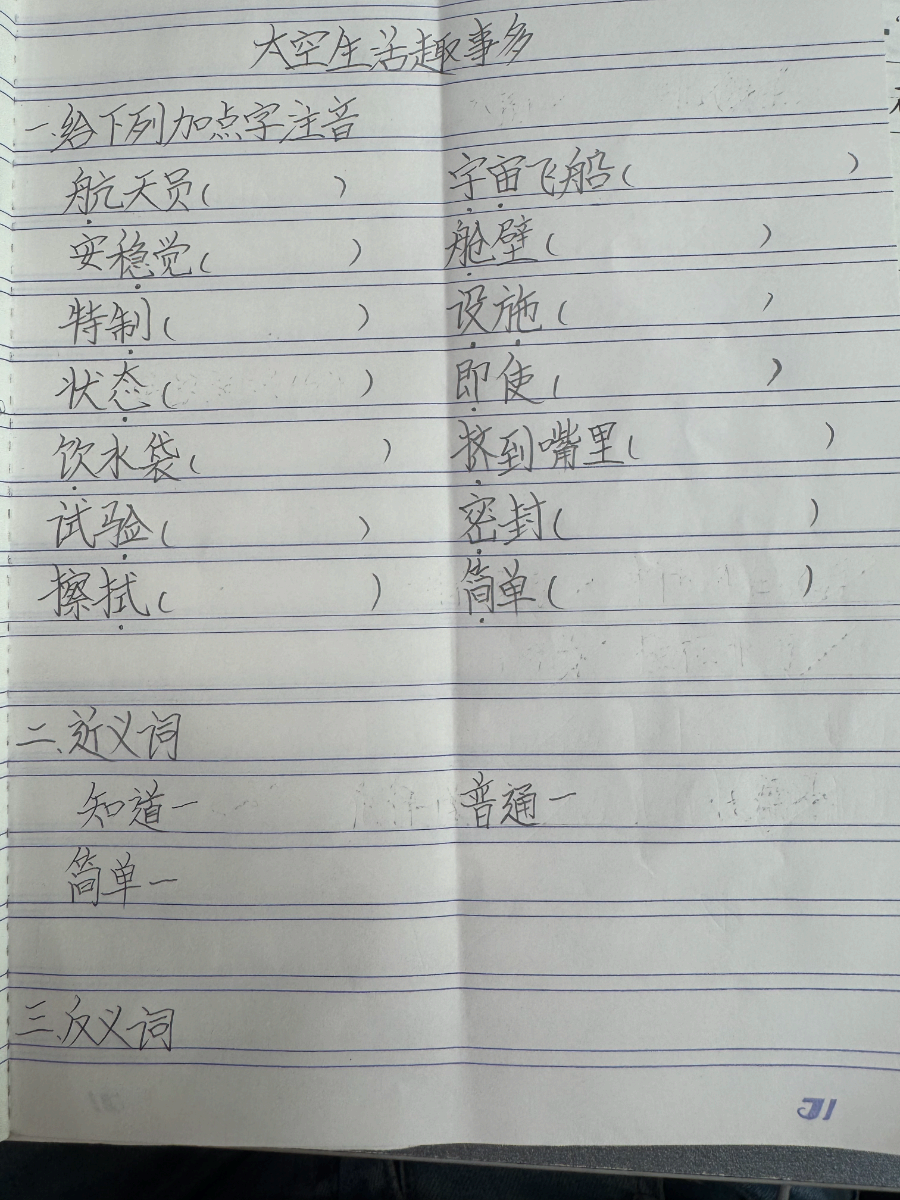 太空生活趣事多
一、给下列加点字注音
航天员( ) 宇宙飞船( )
安稳觉( ) 舱壁( )
特制( ) 设施( )
状态( ) 即使( )
饮水袋( ) 挤到嘴里( )
试验( ) 密封( )
擦拭( ) 简单( )
二、近义词
知道— 普通—
简单—
三、反义词